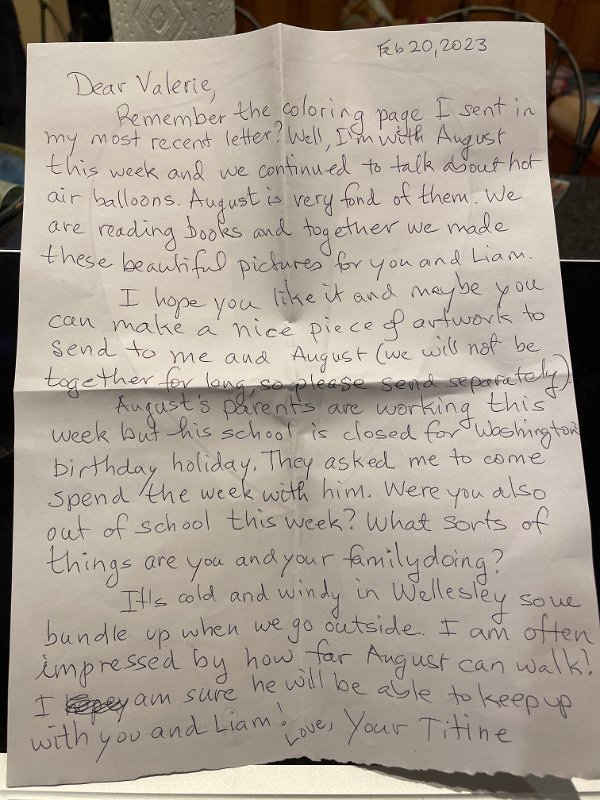 Feb 20, 2023
Dear Valerie,
Remember the coloring page I sent in
my most recent letter? Well, I'm with August
this week and we continued to talk about hot
air balloons. August is very fond of them. We
are reading books and together we made
these beautiful pictures for you and Liam.
I hope you like it and maybe you
can make a nice piece of artwork to
send to me and August (we will not be
together for long, so please send separately).
August's parents are working this
week but his school is closed for Washington's
birthday holiday. They asked me to come
spend the week with him. Were you also
out of school this week? What sorts of
things are you and your family doing?
It's cold and windy in Wellesley so we
bundle up when we go outside. I am often
impressed by how far August can walk!
I am sure he will be able to keep up
with you and Liam!
Love, Your Titine